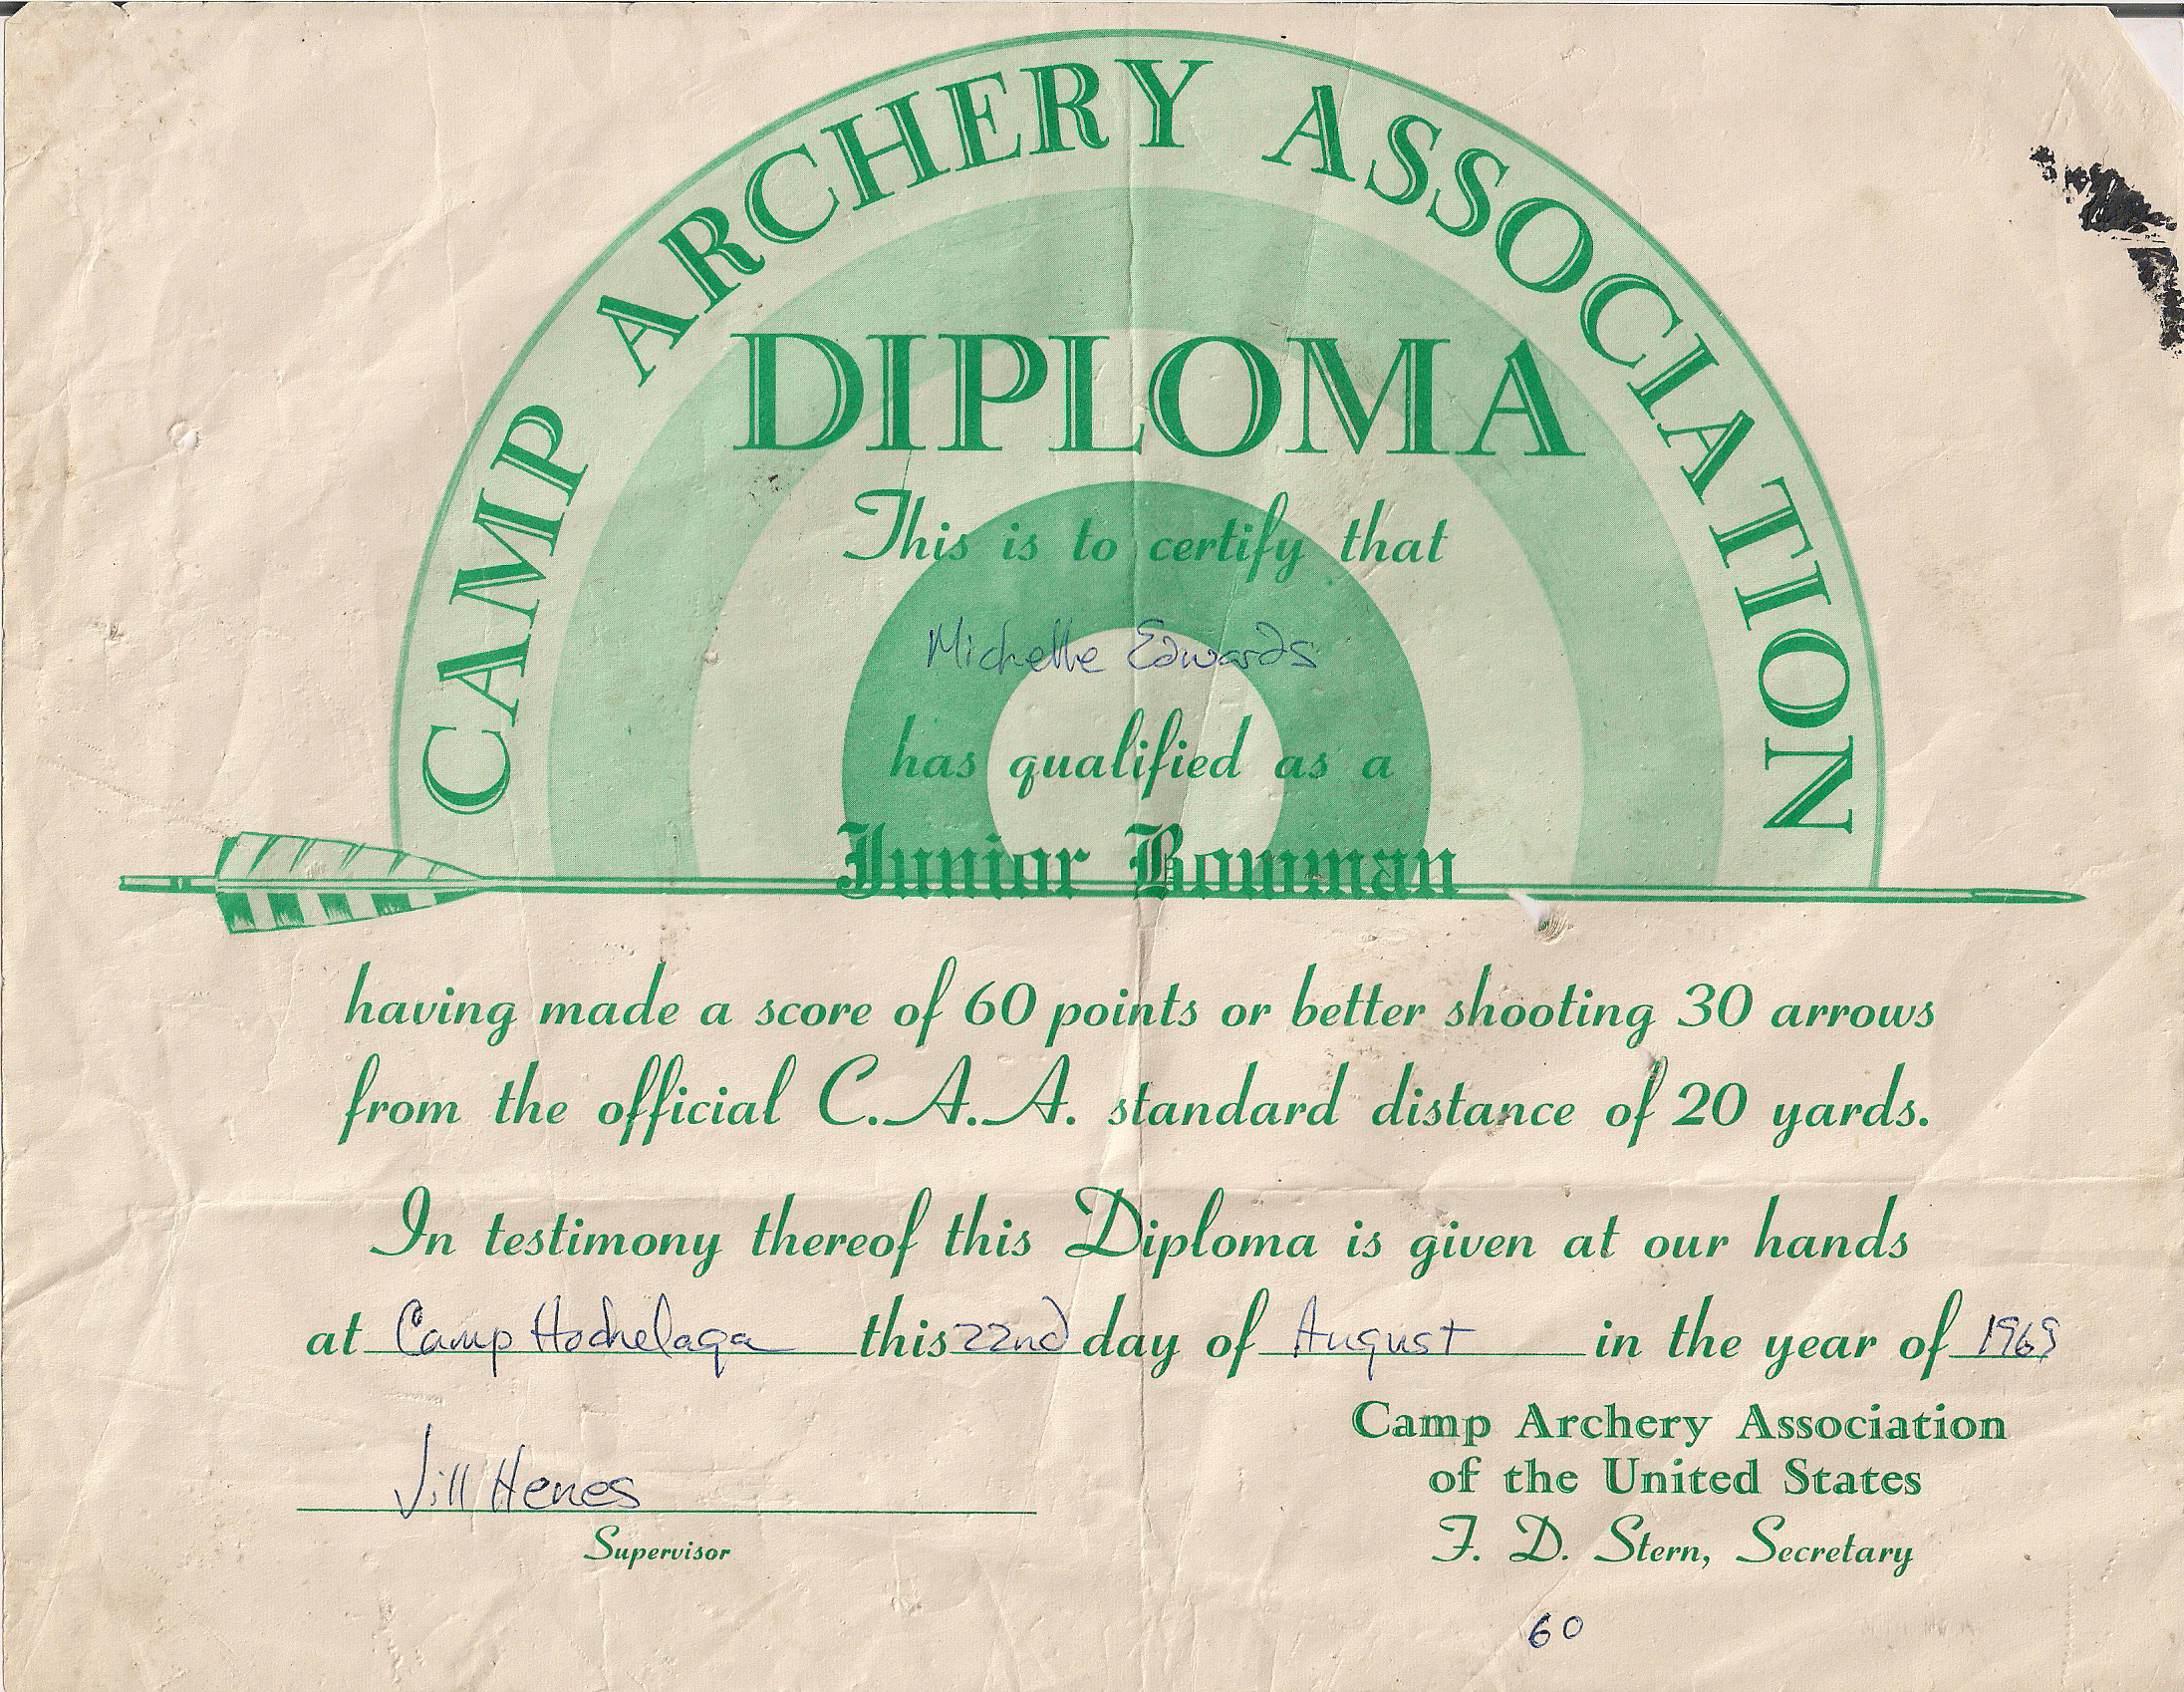 CAMP ARCHERY ASSOCIATION
DIPLOMA
This is to certify that
Michelle Edwards
has qualified as a
Junior Bowman
having made a score of 60 points or better shooting 30 arrows
from the official C.A.A. standard distance of 20 yards.
In testimony thereof this Diploma is given at our hands
at Camp Hochelaga this 22nd day of August in the year of 1969
Camp Archery Association
of the United States
Jill Henes
Supervisor
F. D. Stern, Secretary
60